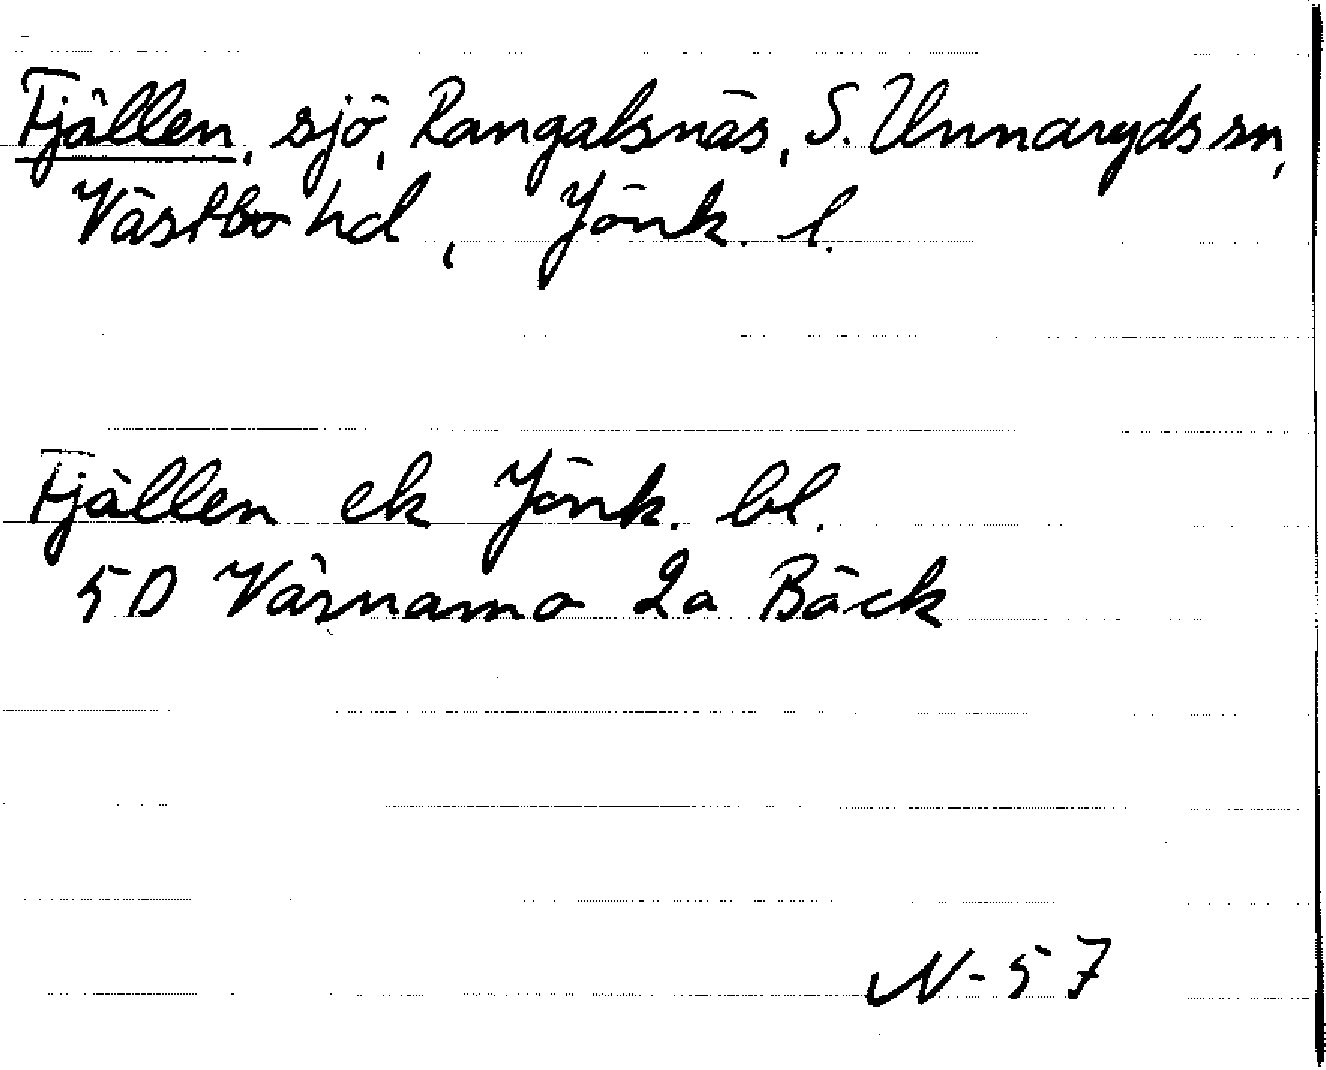 Fjällen, sjö, Rangalsnäs, S. Unnaryds sn,
Västbo hd, Jönk. l.
Fjällen ek Jönk. bl.
5D Värnamo 2a Bäck
N-57